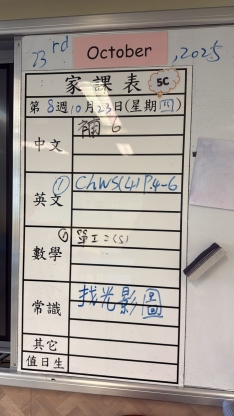 23rd October, 2025
家課表 5C
第8週10月23日(星期四)
中文 補6
英文 ① ChWS(4) P.4-6
數學 ①
常識 找光影圖
其它
值日生